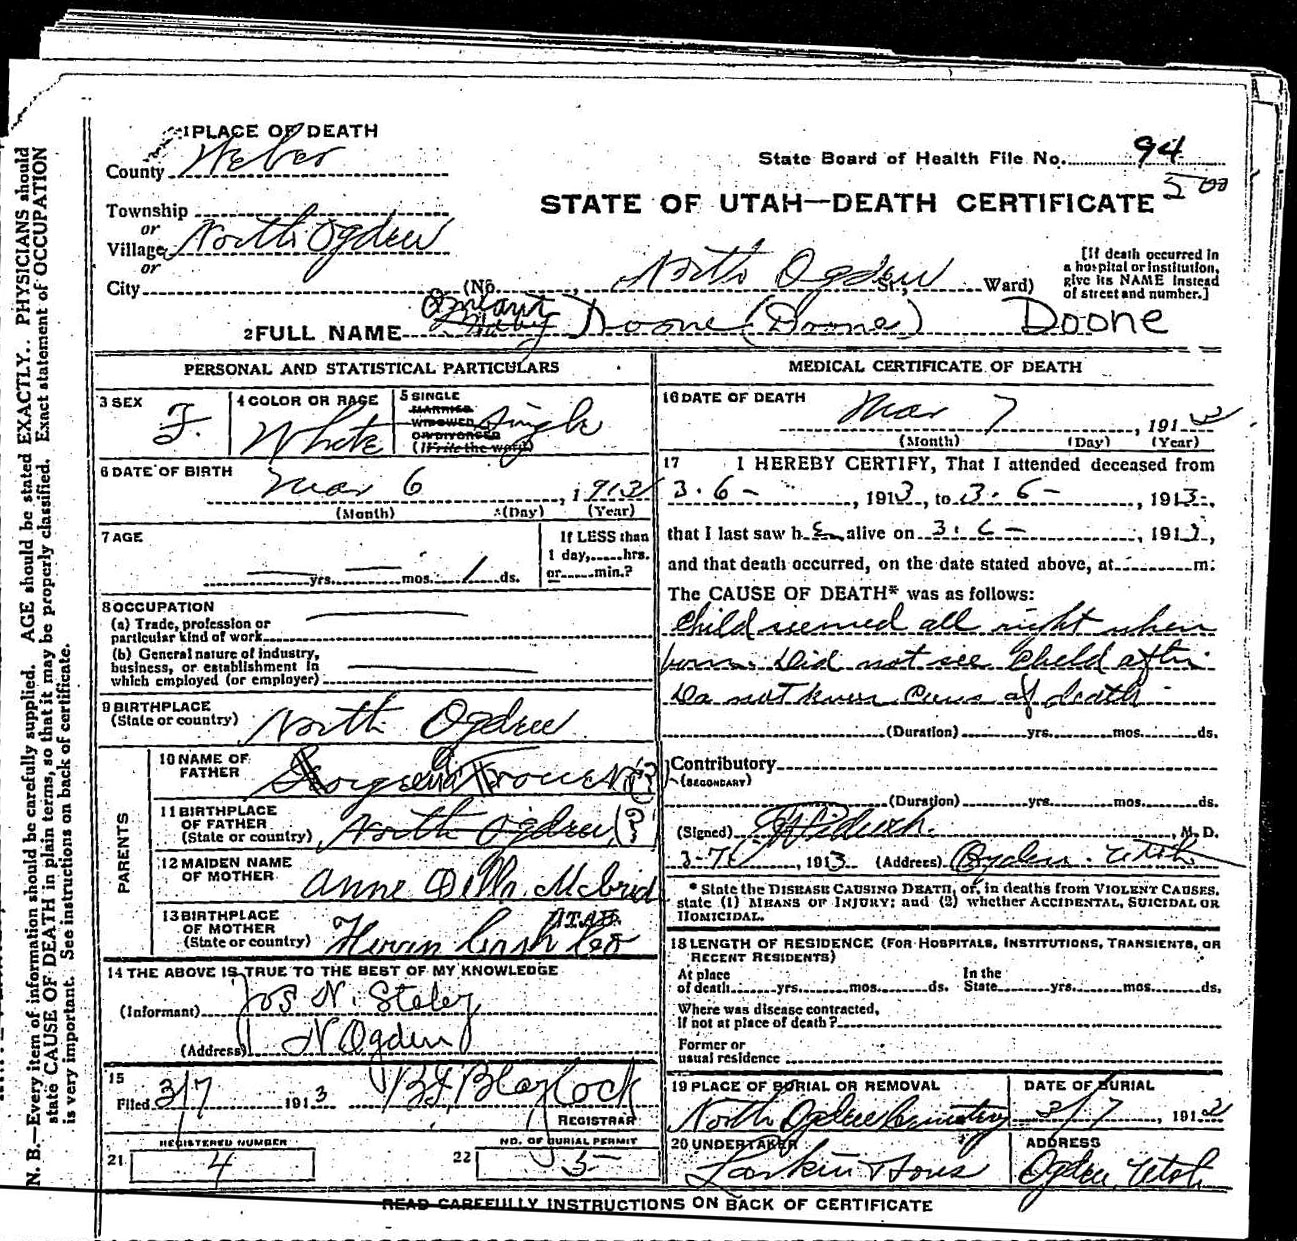 1 PLACE OF DEATH
County Weber
State Board of Health File No. 94
5 00
STATE OF UTAH—DEATH CERTIFICATE
Township
or
Village North Ogden
or
City (No. , North Ogden St., Ward)
[If death occurred in
a hospital or institution,
give its NAME instead
of street and number.]
2 FULL NAME Infant Baby Doone (Doone) Doone
PERSONAL AND STATISTICAL PARTICULARS
3 SEX F.
4 COLOR OR RACE White
5 SINGLE
MARRIED
WIDOWED
OR DIVORCED
(Write the word)
Single
6 DATE OF BIRTH
Mar 6, 1913
(Month) (Day) (Year)
7 AGE
yrs. mos. 1 ds.
If LESS than
1 day, hrs.
or min.?
8 OCCUPATION
(a) Trade, profession or
particular kind of work
(b) General nature of industry,
business, or establishment in
which employed (or employer)
9 BIRTHPLACE
(State or country) North Ogden
PARENTS
10 NAME OF
FATHER
(?)
11 BIRTHPLACE
OF FATHER
(State or country) North Ogden (?)
12 MAIDEN NAME
OF MOTHER Anne Della McBrid
13 BIRTHPLACE
OF MOTHER
(State or country) UTAH
14 THE ABOVE IS TRUE TO THE BEST OF MY KNOWLEDGE
(Informant) Jos N. Staley
(Address) N Ogden
15
Filed 3/7 1913 Blaylock
REGISTRAR
REGISTERED NUMBER
21 4
NO. OF BURIAL PERMIT
22 5
MEDICAL CERTIFICATE OF DEATH
16 DATE OF DEATH
Mar 7, 1913
(Month) (Day) (Year)
17 I HEREBY CERTIFY, That I attended deceased from
3-6-, 1913, to 3-6-, 1913,
that I last saw h e alive on 3-6-, 1913,
and that death occurred, on the date stated above, at m.
The CAUSE OF DEATH* was as follows:
Child seemed all right when
born. Did not see Child after
Do not know Caus of death
(Duration) yrs. mos. ds.
Contributory
(SECONDARY)
(Duration) yrs. mos. ds.
(Signed) , M. D.
3-7, 1913 (Address) Ogden Utah
* State the DISEASE CAUSING DEATH, or, in deaths from VIOLENT CAUSES,
state (1) MEANS OF INJURY; and (2) whether ACCIDENTAL, SUICIDAL OR
HOMICIDAL.
18 LENGTH OF RESIDENCE (FOR HOSPITALS, INSTITUTIONS, TRANSIENTS, OR
RECENT RESIDENTS)
At place
of death yrs. mos. ds.
In the
State yrs. mos. ds.
Where was disease contracted,
if not at place of death?
Former or
usual residence
19 PLACE OF BURIAL OR REMOVAL
North Ogden Cemetery
DATE OF BURIAL
3/7, 1913
20 UNDERTAKER
Larkin & Sons
ADDRESS
Ogden Utah
READ CAREFULLY INSTRUCTIONS ON BACK OF CERTIFICATE
N. B.—Every item of information should be carefully supplied. AGE should be stated EXACTLY. PHYSICIANS should
state CAUSE OF DEATH in plain terms, so that it may be properly classified. Exact statement of OCCUPATION
is very important. See instructions on back of certificate.